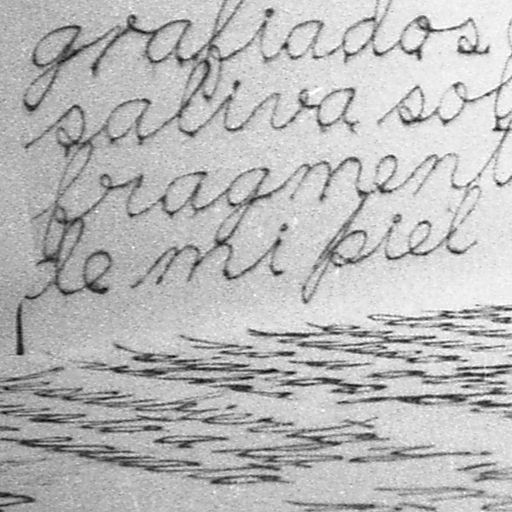 grafiados
saliva sob
fragment
de mi piel